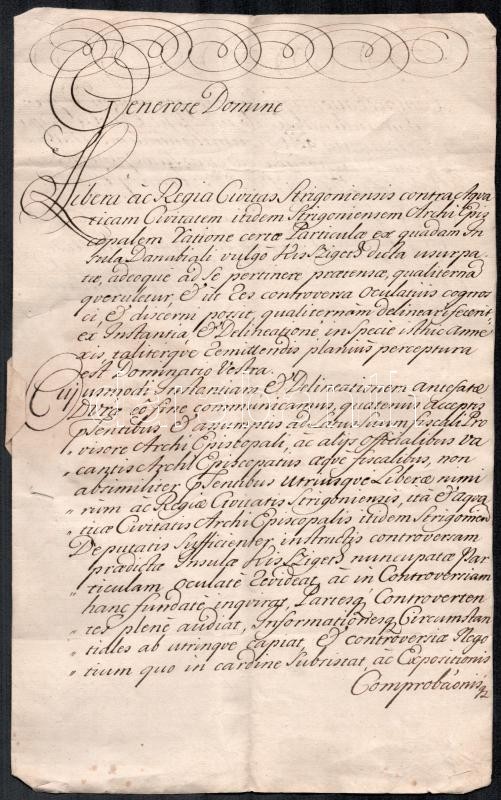 Generose Domine
Libera ac Regia Civitas Strigoniensis contra Aqva
ticam Civitatem itidem Strigoniensem Archi Epis
copalem ratione certæ Particulæ ex quadam In
sula Danubiali vulgò Kis Sziget dicta usurpa
tæ, adeoque ad se pertinere prætensæ, qualiternam
queruletur, & ut res controversa oculatius cognos
ci & discerni possit, qualiternam delineari fecerit,
ex Instantia, & Delineatione in specie isthic anne
xis, taliterque remittendis planius perceptura
est Dominatio Vestra.
Cujusmodi Instantiam & Delineationem antefatæ
Dnãoni eo fine communicamus, quatenus acceptis
præsentibus & assumptis ad Latus suum fiscali Pro
visore Archi Episcopali, ac alijs officialibus va
cantis Archi Episcopatus æque fiscalibus, non
absimiliter præsentibus utriusque Liberæ nimi
rum ac Regiæ Civitatis Strigoniensis, ita & aqva
ticæ Civitatis Archi Episcopalis itidem Strigonien
Deputatis sufficienter instructis controversam
prædictæ Insulæ Kis Sziget nuncupatæ Par
ticulam, oculate revideat, ac in Controversiam
hanc fundate inquirat, Partesque Controverten
tes plene audiat, Informationesque Circumstan
tiales ab utrinque capiat, & controversiæ Nego
tium quo in cardine subsistat, ac Expositionis
Comprobaonisque